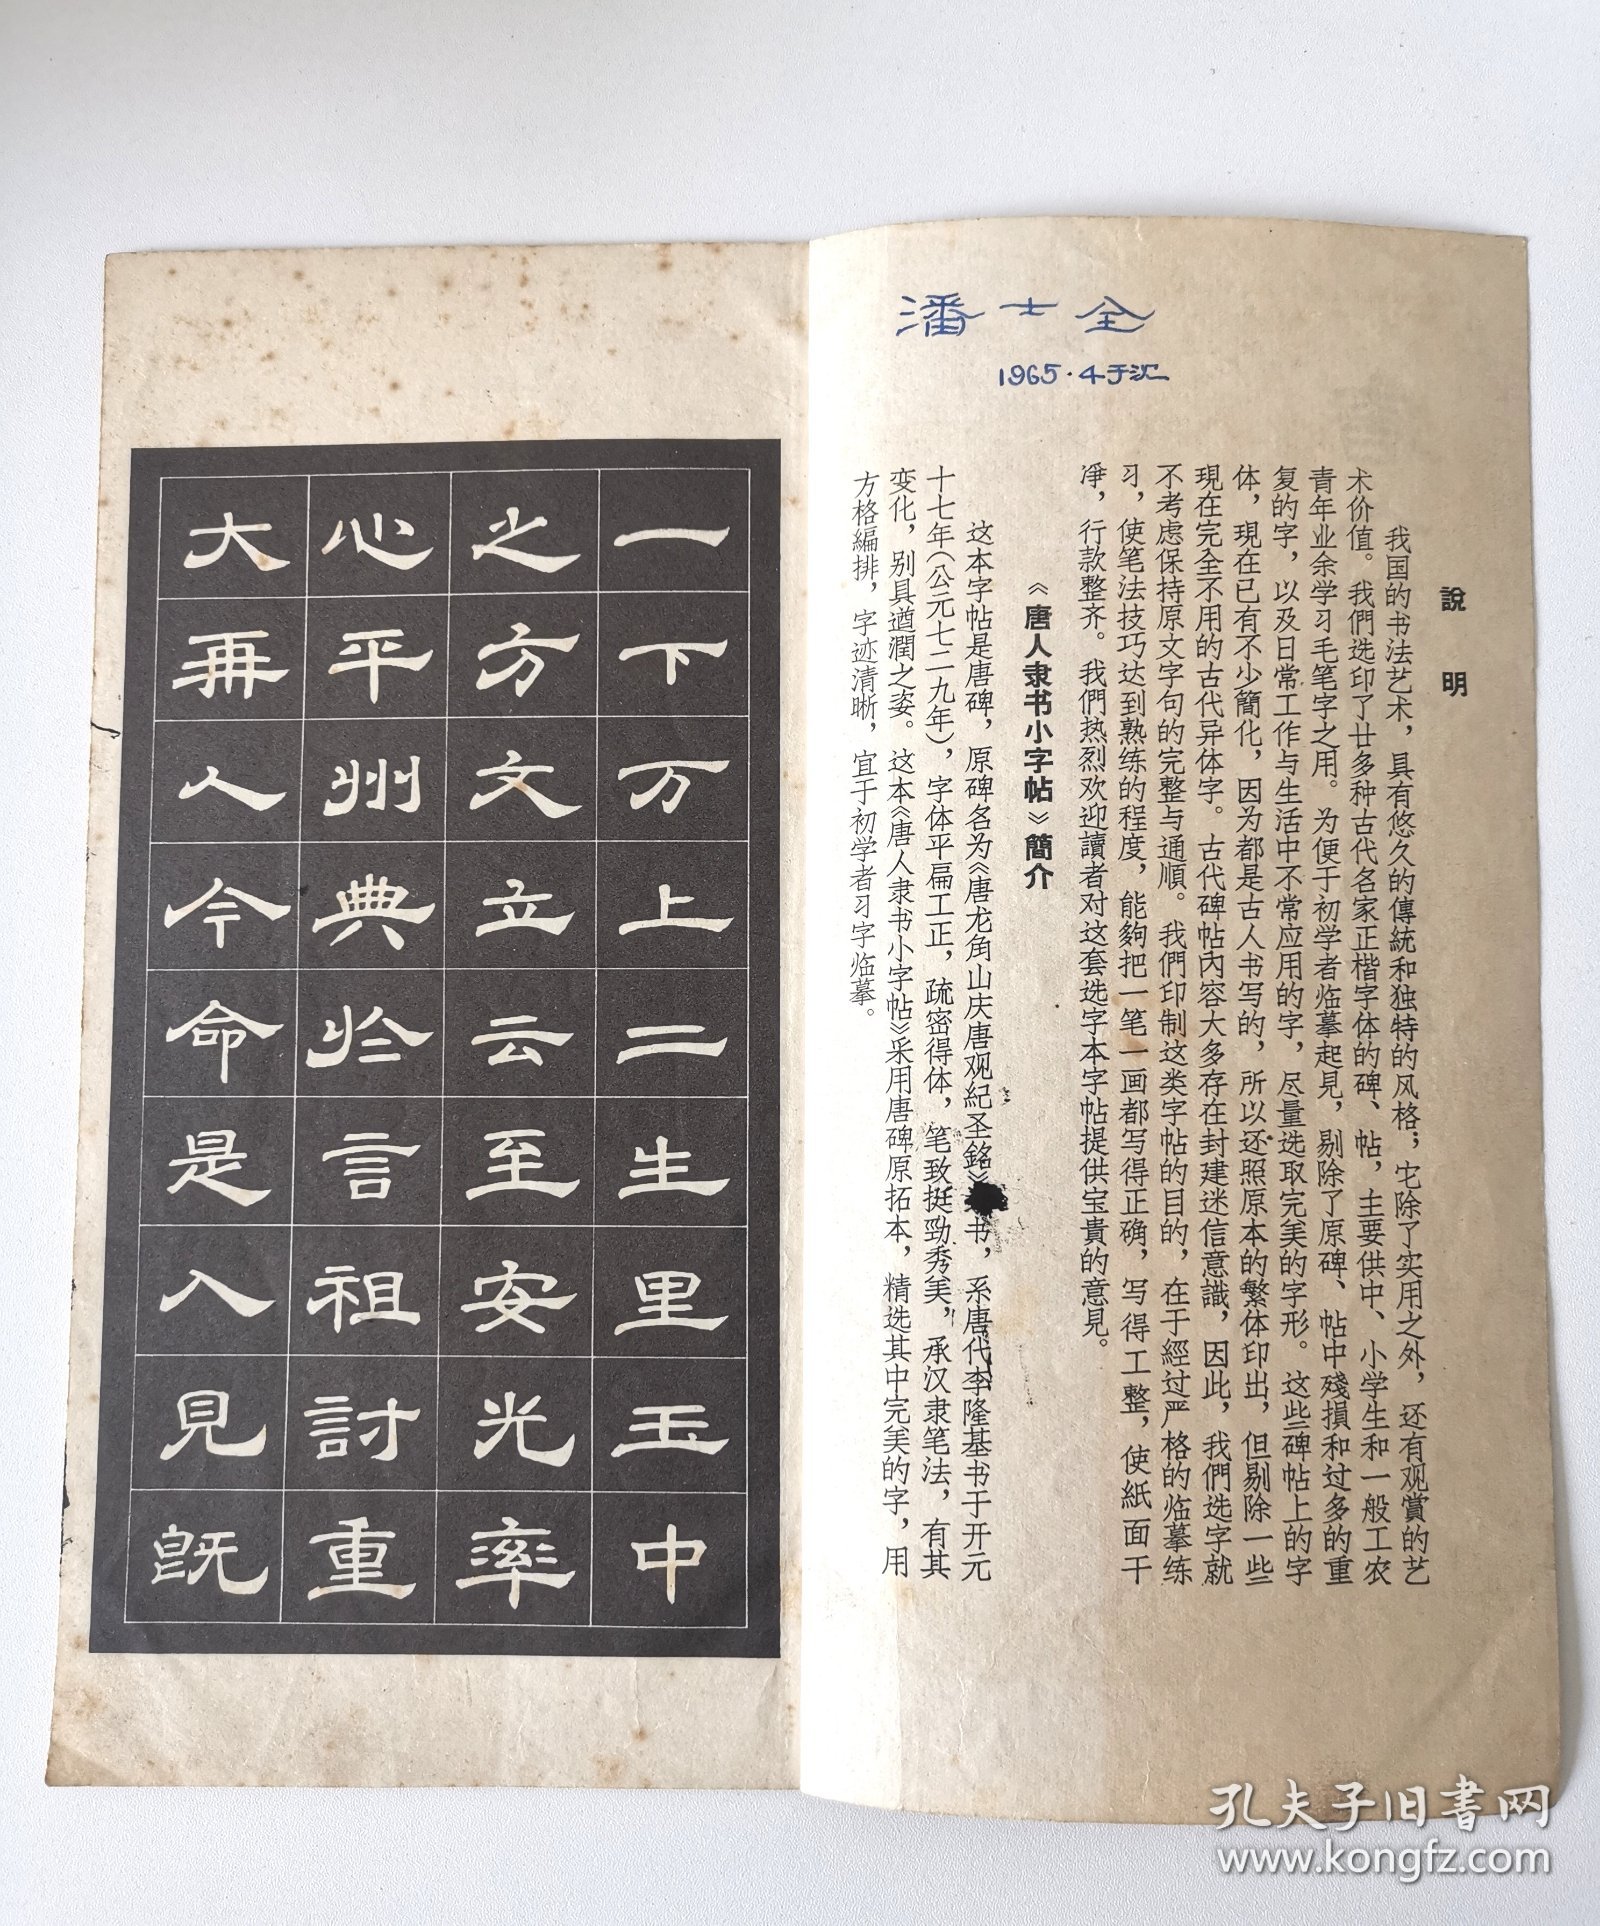 潘士全
1965.4于汇
說明
我国的书法艺术，具有悠久的傳統和独特的风格；它除了实用之外，还有观赏的艺
术价值。我們选印了廿多种古代名家正楷字体的碑、帖，主要供中、小学生和一般工农
青年业余学习毛笔字之用。为便于初学者临摹起見，剔除了原碑、帖中殘損和过多的重
复的字，以及日常工作与生活中不常应用的字，尽量选取完美的字形。这些碑帖上的字
体，現在已有不少簡化，因为都是古人书写的，所以还照原本的繁体印出，但剔除一些
現在完全不用的古代异体字。古代碑帖內容大多存在封建迷信意識，因此，我們选字就
不考虑保持原文字句的完整与通順。我們印制这类字帖的目的，在于經过严格的临摹练
习，使笔法技巧达到熟练的程度，能夠把一笔一画都写得正确，写得工整，使紙面干
净，行款整齐。我們热烈欢迎讀者对这套选字本字帖提供宝貴的意見。
《唐人隶书小字帖》簡介
这本字帖是唐碑，原碑名为《唐龙角山庆唐观紀圣銘》书，系唐代李隆基书于开元
十七年（公元七二九年），字体平扁工正，疏密得体，笔致挺勁秀美，承汉隶笔法，有其
变化，别具遒潤之姿。这本《唐人隶书小字帖》采用唐碑原拓本，精选其中完美的字，用
方格編排，字迹清晰，宜于初学者习字临摹。
一下万上二生里玉中
之方文立云至安光率
心平州典於言祖討重
大再人今命是入見既
孔夫子旧書网
www.kongfz.com